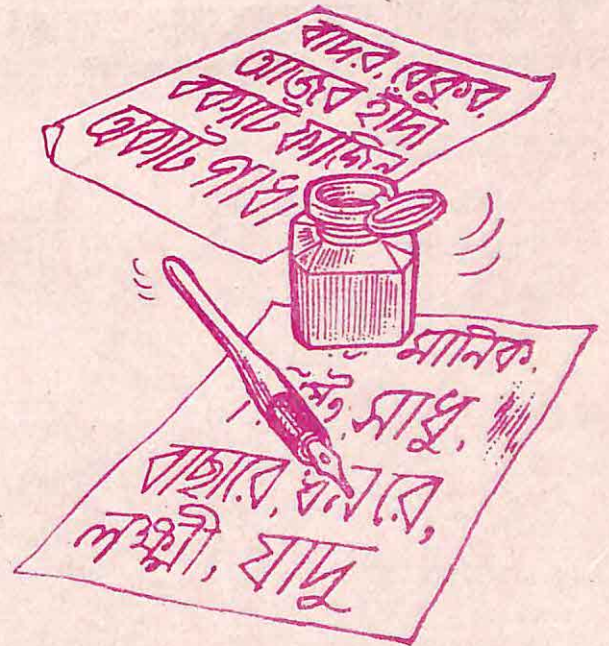 বাদর, বেকুব,
আজব হাঁদা
বকাট ফাজিল
অকাট গাধা
মানিক
সাধু,
বাছারে, ধন রে,
লক্ষ্মী, যাদু